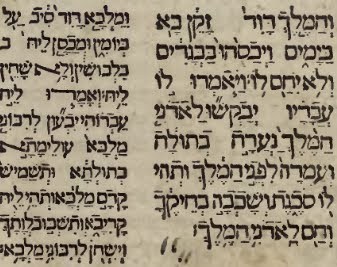 והמלך דוד זקן בא
בימים ויכסהו בבגדים
ולא יחם לו ויאמרו לו
עבדיו יבקשו לאדני
המלך נערה בתולה
ועמדה לפני המלך ותהי
לו סכנת ושכבה בחיקך
וחם לאדני המלך
ומלכא דוד סיב על
ביומין ומכסן ליה
בלבושין ולא שחין
ליה ואמרו ליה
עבדוהי יבעון לרבוני
מלכא עולימתא
בתולתא ותשמיש
קדם מלכא ותהי ליה
קריבא ותשכוב לותך
וישחן לרבוני מלכא